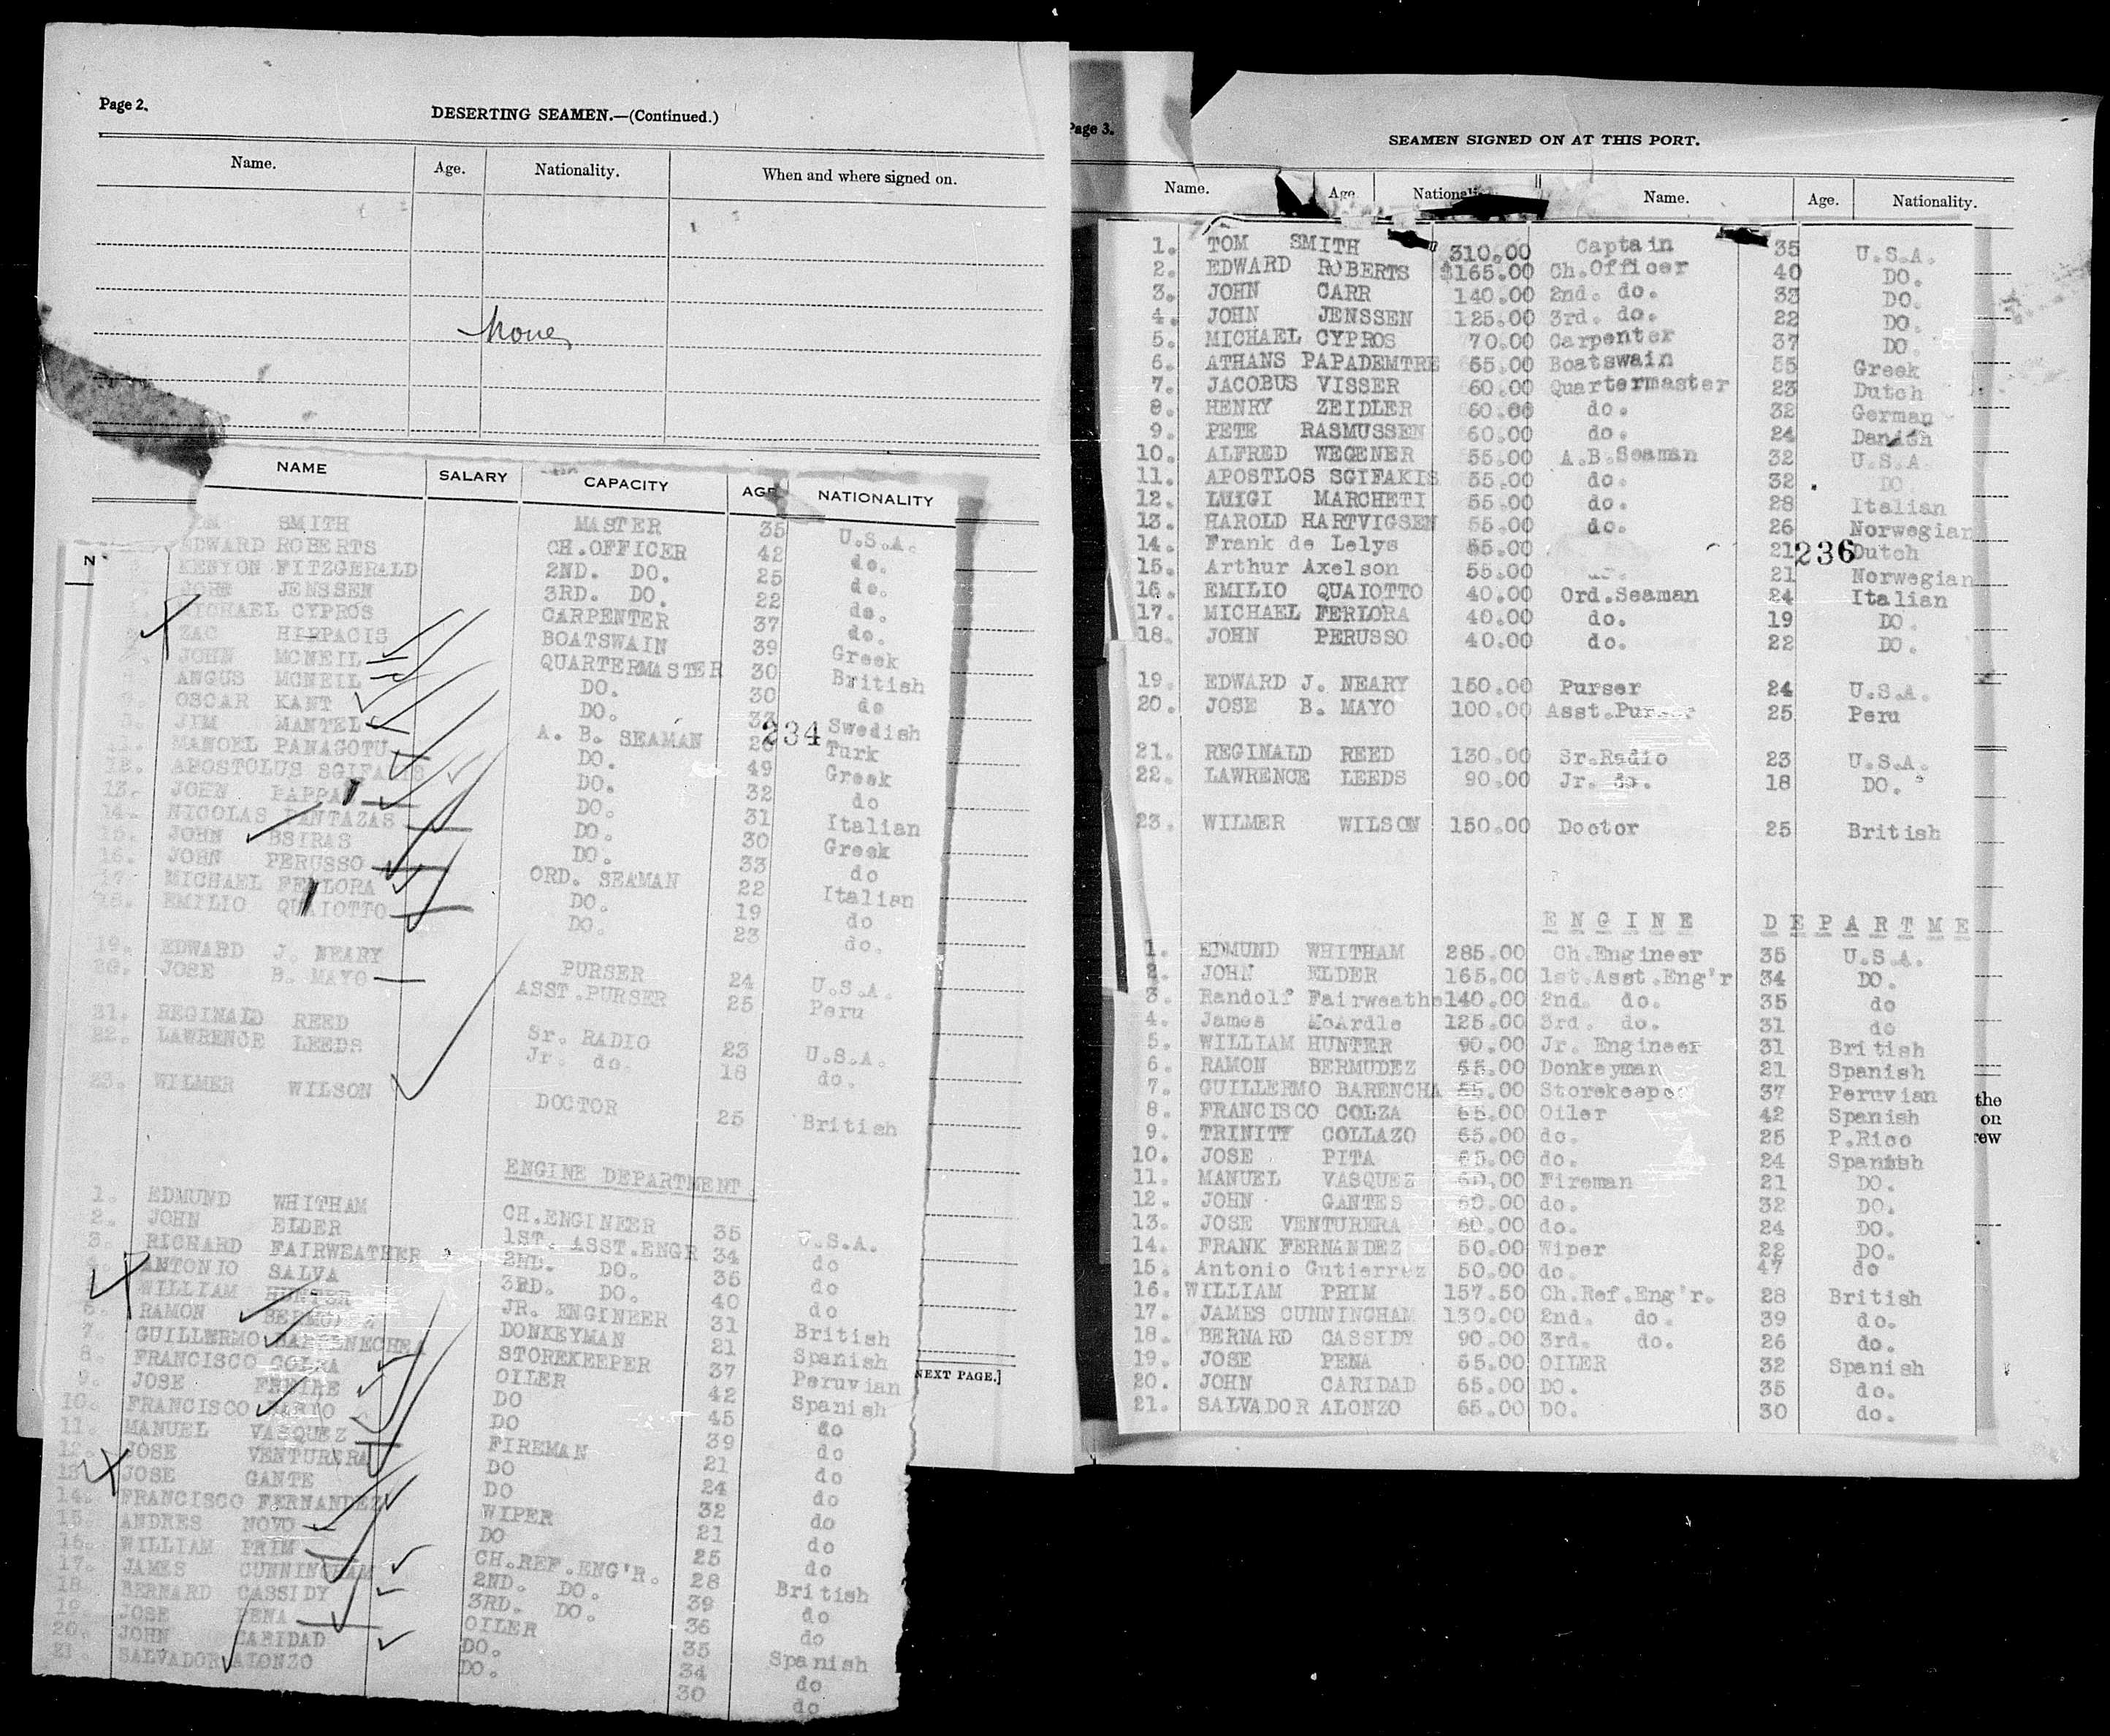 Page 2.
DESERTING SEAMEN.—(Continued.)
Name. Age. Nationality. When and where signed on.
None
NAME SALARY CAPACITY AGE NATIONALITY
SMITH MASTER 35 U.S.A.
EDWARD ROBERTS CH.OFFICER 42 do.
KENYON FITZGERALD 2ND. DO. 25 do.
JOHN JENSSEN 3RD. DO. 22 do.
MICHAEL CYPROS CARPENTER 37 do.
ZAC HIPPACIS BOATSWAIN 39 Greek
JOHN MCNEIL QUARTERMASTER 30 British
ANGUS MCNEIL DO. 30 do
OSCAR KANT DO. Swedish
JIM MANTEL A. B. SEAMAN Turk
234
11. MANOEL PANAGOTU DO. 49 Greek
12. APOSTOLUS SGIFAKIS DO. 32 do
13. JOHN PAPPAN DO. 31 Italian
14. NICOLAS PANTAZAS DO. 30 Greek
15. JOHN BSIRAS DO. 33 do
16. JOHN PERUSSO ORD. SEAMAN 22 Italian
17. MICHAEL FERLORA DO. 19 do
18. EMILIO QUAIOTTO DO. 23 do.
19. EDWARD J. NEARY PURSER 24 U.S.A.
20. JOSE B. MAYO ASST.PURSER 25 Peru
21. REGINALD REED Sr. RADIO 23 U.S.A.
22. LAWRENCE LEEDS Jr. do. 18 do.
23. WILMER WILSON DOCTOR 25 British
ENGINE DEPARTMENT
1. EDMUND WHITHAM CH.ENGINEER 35 U.S.A.
2. JOHN ELDER 1ST. ASST.ENGR 34 do
3. RICHARD FAIRWEATHER 2ND. DO. 35 do
4. ANTONIO SALVA 3RD. DO. 40 do
WILLIAM HUNTER JR. ENGINEER 31 British
6. RAMON BERMUDEZ DONKEYMAN 21 Spanish
7. GUILLERMO BARRENECHEA STOREKEEPER 37 Peruvian
8. FRANCISCO COLZA OILER 42 Spanish
9. JOSE FREIRE DO 45 do
10. FRANCISCO DO 39 do
11. MANUEL VASQUEZ FIREMAN 21 do
12. JOSE VENTURERA DO 24 do
13. JOSE GANTE DO 32 do
14. FRANCISCO FERNANDEZ WIPER 21 do
15. ANDRES NOVO DO 25 do
16. WILLIAM PRIM CH.REF.ENG'R. 28 British
17. JAMES CUNNINGHAM 2ND. DO. 39 do
18. BERNARD CASSIDY 3RD. DO. 36 do
19. JOSE PENA OILER 35 Spanish
20. JOHN CARIDAD DO. 34 do
21. SALVADOR ALONZO DO. 30 do
NEXT PAGE.]
Page 3.
SEAMEN SIGNED ON AT THIS PORT.
Name. Age Nationali Name. Age. Nationality.
1. TOM SMITH 310.00 Captain 35 U.S.A.
2. EDWARD ROBERTS $165.00 Ch.Officer 40 DO.
3. JOHN CARR 140.00 2nd. do. 33 DO.
4. JOHN JENSSEN 125.00 3rd. do. 22 DO.
5. MICHAEL CYPROS 70.00 Carpenter 37 DO.
6. ATHANS PAPADEMTRE 65.00 Boatswain 55 Greek
7. JACOBUS VISSER 60.00 Quartermaster 23 Dutch
8. HENRY ZEIDLER 60.00 do. 32 German
9. PETE RASMUSSEN 60.00 do. 24 Danish
10. ALFRED WEGENER 55.00 A.B.Seaman 32 U.S.A
11. APOSTLOS SGIFAKIS 55.00 do. 32 DO
12. LUIGI MARCHETI 55.00 do. 28 Italian
13. HAROLD HARTVIGSEN 55.00 do. 26 Norwegian
14. Frank de Lelys 55.00 21 Dutch
236
15. Arthur Axelson 55.00 21 Norwegian
16. EMILIO QUAIOTTO 40.00 Ord.Seaman 24 Italian
17. MICHAEL FERLORA 40.00 do. 19 DO.
18. JOHN PERUSSO 40.00 do. 22 DO.
19. EDWARD J. NEARY 150.00 Purser 24 U.S.A.
20. JOSE B. MAYO 100.00 Asst.Purser 25 Peru
21. REGINALD REED 130.00 Sr.Radio 23 U.S.A.
22. LAWRENCE LEEDS 90.00 Jr. do. 18 DO.
23. WILMER WILSON 150.00 Doctor 25 British
ENGINE DEPARTME
1. EDMUND WHITHAM 285.00 Ch.Engineer 35 U.S.A.
2. JOHN ELDER 165.00 1st.Asst.Eng'r 34 DO.
3. Randolf Fairweathe 140.00 2nd. do. 35 do
4. James McArdle 125.00 3rd. do. 31 do
5. WILLIAM HUNTER 90.00 Jr. Engineer 31 British
6. RAMON BERMUDEZ 65.00 Donkeyman 21 Spanish
7. GUILLERMO BARENCHA 65.00 Storekeeper 37 Peruvian
8. FRANCISCO COLZA 65.00 Oiler 42 Spanish
9. TRINITY COLLAZO 65.00 do. 25 P.Rico
10. JOSE PITA 65.00 do. 24 Spanish
11. MANUEL VASQUEZ 60.00 Fireman 21 DO.
12. JOHN GANTES 60.00 do. 32 DO.
13. JOSE VENTURERA 60.00 do. 24 DO.
14. FRANK FERNANDEZ 50.00 Wiper 22 DO.
15. Antonio Gutierrez 50.00 do. 47 do
16. WILLIAM PRIM 157.50 Ch.Ref.Eng'r. 28 British
17. JAMES CUNNINGHAM 130.00 2nd. do. 39 do.
18. BERNARD CASSIDY 90.00 3rd. do. 26 do.
19. JOSE PENA 65.00 OILER 32 Spanish
20. JOHN CARIDAD 65.00 DO. 35 do.
21. SALVADOR ALONZO 65.00 DO. 30 do.
the
on
rew